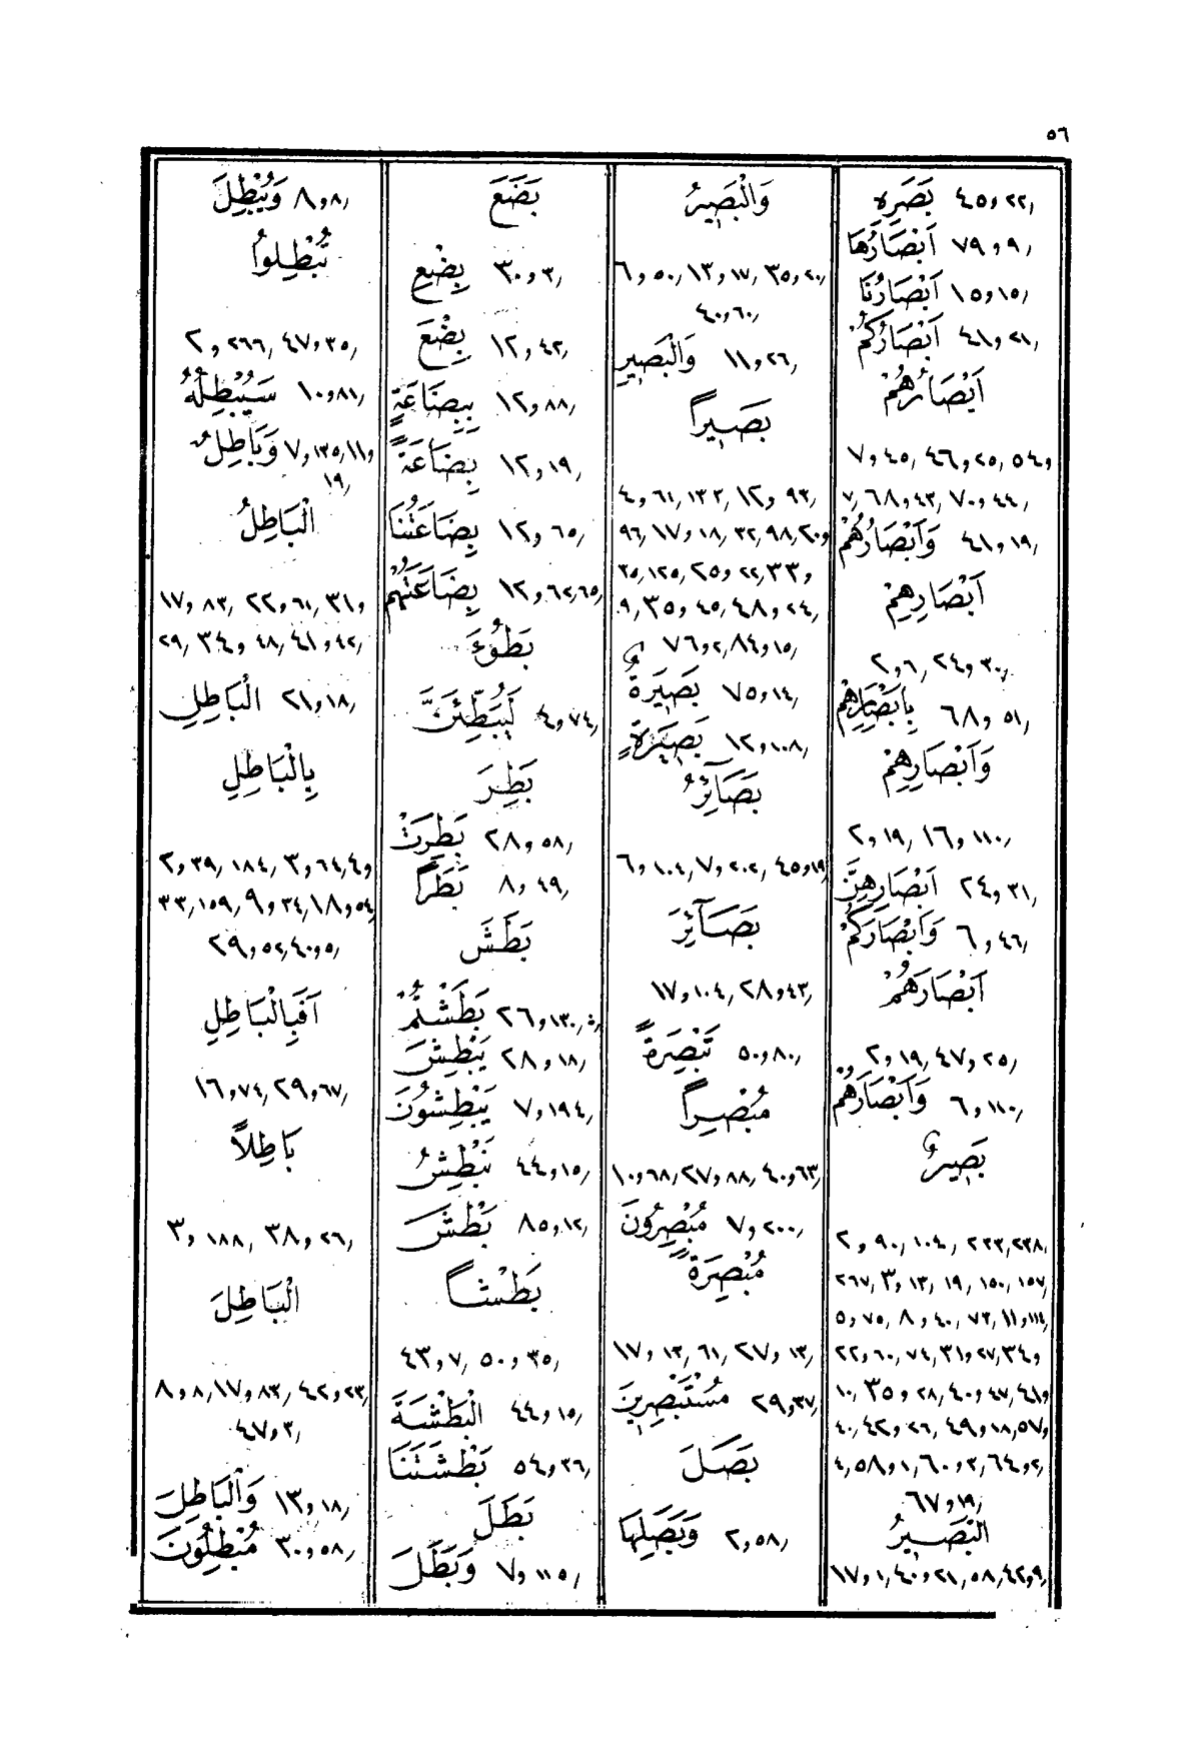 ٥٦
بَصَرِهِ ٤٥و٢٢٫
اَبْصَارُهَا ٧٩و٩٫
اَبْصَارُنَا ١٥و١٥٫
اَبْصَارُكُمْ ٤١و٢١٫
اَبْصَارُهُمْ
٧و٤٥٫ ٤٦و٢٥٫ ٥٤و
٧٫ ٦٨و٤٣٫ ٧٠و٤٤٫
وَاَبْصَارُهُمْ ٤١و١٩٫
اَبْصَارِهِمْ
٢و٦٫ ٢٤و٣٠٫
بِاَبْصَارِهِمْ ٦٨و٥١٫
وَاَبْصَارِهِمْ
٢و١٩٫ ١٦و١١٠٫
اَبْصَارِهِنَّ ٢٤و٣١٫
وَاَبْصَارَكُمْ ٦و٤٦٫
اَبْصَارَهُمْ
٢و١٩٫ ٤٧و٢٥٫
وَاَبْصَارَهُمْ ٦و١١٠٫
بَصِيرٌ
٢و٩٠٫ ١٠٤٫ ٢٣٣٫ ٢٣٨٫
٢٦٧٫ ٣و١٣٫ ١٩٫ ١٥٠٫ ١٥٧٫
٥و٧٥٫ ٨و٤٠٫ ٧٣٫ ١١و١١٤٫
٢٢و٦٠٫ ٧٤٫ ٣١و٢٧٫ ٣٤و
١٠٫ ٣٥و٢٨٫ ٤٠و٤٧٫ ٤١و
٤٠٫ ٤٢و٢٦٫ ٤٩و١٨٫ ٥٧و
٤٫ ٥٨و١٫ ٦٠و٣٫ ٦٤و٢٫
٦٧و١٩٫
الْبَصِيرُ
١٧و١٫ ٤٠و٢١٫ ٥٨٫ ٤٢و٩٫
وَالْبَصِيرُ
٦و٥٠٫ ١٣و١٧٫ ٣٥و٢٠٫
٤٠و٦٠٫
وَالْبَصِيرِ ١١و٢٦٫
بَصِيراً
٤و٦١٫ ١٣٣٫ ١٢و٩٣٫
٩٦٫ ١٧و١٨٫ ٣٢٫ ٩٨٫ ٢٠و
٣٥٫ ١٢٥٫ ٢٥و٢٢٫ ٣٣و
٩٫ ٣٥و٤٥٫ ٤٨و٢٤٫
٧٦و٢٫ ٨٤و١٥٫
بَصِيرَةٌ ٧٥و١٤٫
بَصِيرَةٍ ١٢و١٠٨٫
بَصَآئِرُ
٦و١٠٤٫ ٧و٢٠٢٫ ٤٥و١٩٫
بَصَآئِرَ
١٧و١٠٤٫ ٢٨و٤٣٫
تَبْصِرَةً ٥٠و٨٠٫
مُبْصِراً
١٠و٦٨٫ ٢٧و٨٨٫ ٤٠و٦٣٫
مُبْصِرُونَ ٧و٢٠٠٫
مُبْصِرَةً
١٧و١٢٫ ٦١٫ ٢٧و١٣٫
مُسْتَبْصِرِينَ ٢٩و٣٧٫
بَصَلَ
وَبَصَلِهَا ٢و٥٨٫
بَضَعَ
بِضْعِ ٣٠و٣٫
بِضْعَ ١٢و٤٢٫
بِبِضَاعَةٍ ١٢و٨٨٫
بِضَاعَةً ١٢و١٩٫
بِضَاعَتُنَا ١٢و٦٥٫
بِضَاعَتَهُمْ ١٢و٦٢٫٦٥٫
بَطُؤَ
لَيُبَطِّئَنَّ ٤و٧٤٫
بَطِرَ
بَطِرَتْ ٢٨و٥٨٫
بَطَراً ٨و٤٩٫
بَطَشَ
بَطَشْتُمْ ٢٦و١٣٠٫
يَبْطِشَ ٢٨و١٨٫
يَبْطِشُونَ ٧و١٩٤٫
نَبْطِشُ ٤٤و١٥٫
بَطْشَ ٨٥و١٢٫
بَطْشاً
٤٣و٧٫ ٥٠و٣٥٫
الْبَطْشَةَ ٤٤و١٥٫
بَطْشَتَنَا ٥٤و٣٦٫
بَطَلَ
وَبَطَلَ ٧و١١٥٫
وَيُبْطِلَ ٨و٨٫
تُبْطِلُوا
٢و٢٦٦٫ ٤٧و٣٥٫
سَيُبْطِلُهُ ١٠و٨١٫
وَبَاطِلٌ ٧و١٣٥٫ ١١و
١٩٫
الْبَاطِلُ
١٧و٨٣٫ ٢٢و٦١٫ ٣١و
٢٩٫ ٣٤و٤٨٫ ٤١و٤٢٫
الْبَاطِلِ ٢١و١٨٫
بِالْبَاطِلِ
٢و٣٩٫ ١٨٤٫ ٣و٦٤٫ ٤و
٣٣٫ ١٥٩٫ ٩و٣٤٫ ١٨و٥٤٫
٢٩و٥٢٫ ٤٠و٥٫
اَفَبِالْبَاطِلِ
١٦و٧٤٫ ٢٩و٦٧٫
بَاطِلاً
٣و١٨٨٫ ٣٨و٢٦٫
الْبَاطِلَ
٨و٨٫ ١٧و٨٣٫ ٤٢و٢٣٫
٤٧و٣٫
وَالْبَاطِلَ ١٣و١٨٫
مُبْطِلُونَ ٣٠و٥٨٫